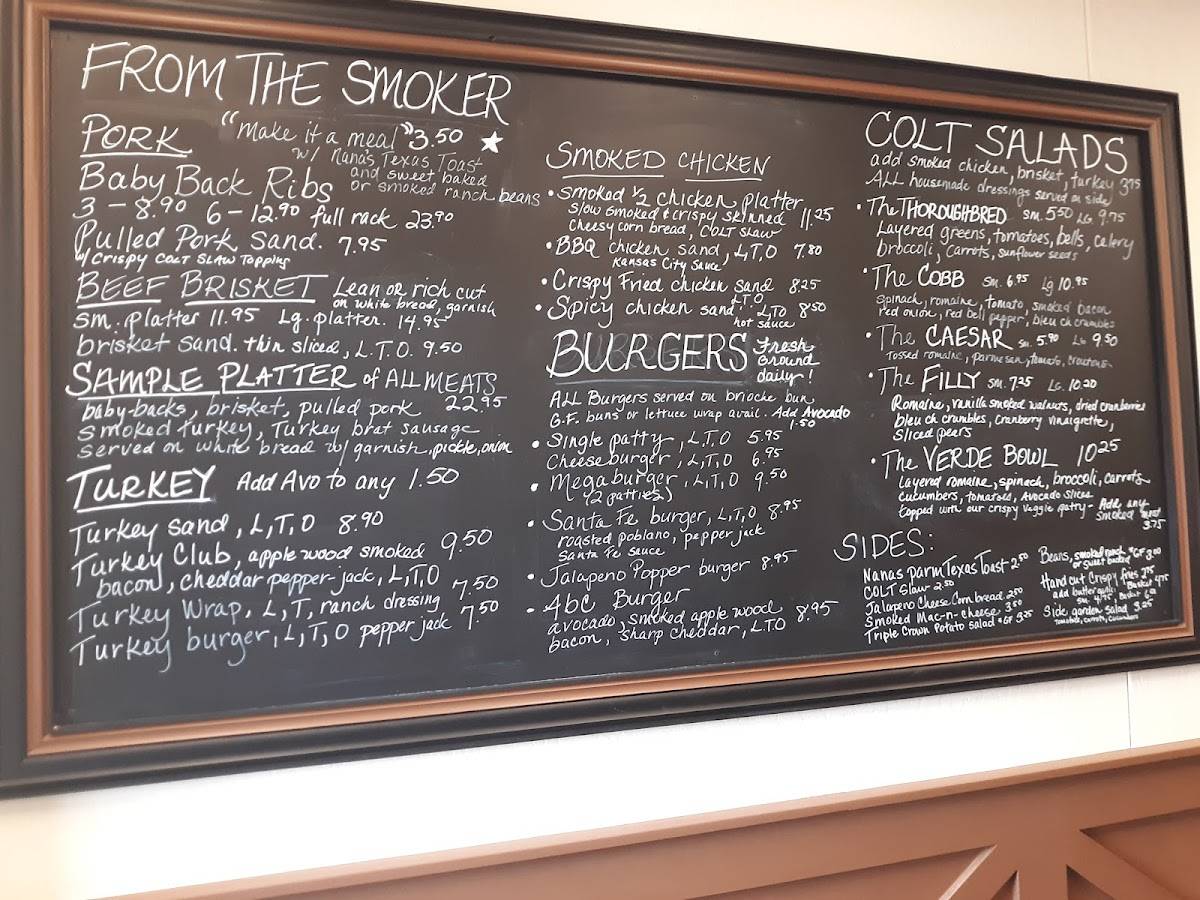 FROM THE SMOKER
PORK
"make it a meal" 3.50
w/ Nana's Texas Toast
and sweet baked
or smoked ranch beans
Baby Back Ribs
3 - 8.90 6 - 12.90 full rack 23.90
Pulled Pork Sand. 7.95
w/ CRISPY COLT SLAW TOPPING
BEEF BRISKET Lean or rich cut
on white bread, garnish
sm. platter 11.95 Lg. platter. 14.95
brisket sand. thin sliced, L.T.O. 9.50
SAMPLE PLATTER of ALL MEATS
baby-backs, brisket, pulled pork 22.95
smoked turkey, Turkey brat sausage
served on white bread w/ garnish, pickle, onion
TURKEY Add Avo to any 1.50
Turkey sand, L, T, O 8.90
Turkey Club, apple wood smoked 9.50
bacon, cheddar pepper-jack, L, T, O
Turkey Wrap, L, T, ranch dressing 7.50
Turkey burger, L, T, O pepper jack 7.50
SMOKED CHICKEN
• Smoked 1/2 chicken platter 11.25
slow smoked & crispy skinned
cheesy corn bread, COLT slaw
• BBQ chicken sand, L, T, O 7.80
Kansas City Sauce
• Crispy Fried chicken sand 8.25
L.T.O
• Spicy chicken sand LTO 8.50
hot sauce
BURGERS Fresh
Ground
daily!
ALL Burgers served on brioche bun
G.F. buns or lettuce wrap avail. Add Avocado
1.50
• Single patty, L.T.O 5.95
Cheeseburger, L, T, O 6.95
• Megaburger, L, T, O 9.50
(2 patties)
• Santa Fe burger, L, T, O 8.95
roasted poblano, pepper jack
Santa Fe sauce
• Jalapeno Popper burger 8.95
• Abc Burger
avocado, smoked apple wood 8.95
bacon, sharp cheddar, L.T.O
COLT SALADS
add smoked chicken, brisket, turkey 3.75
ALL housemade dressings served on side
• The THOROUGHBRED SM. 5.50 LG 9.75
Layered greens, tomatoes, bells, celery
broccoli, carrots, sunflower seeds
• The COBB SM. 6.95 Lg 10.95
Spinach, romaine, tomato, smoked bacon
red onion, red bell pepper, bleu ch crumbles
• The CAESAR SM. 5.90 LG 9.50
Tossed romaine, parmesan, tomato, croutons
• The FILLY SM. 7.25 LG. 10.20
Romaine, vanilla smoked walnuts, dried cranberries
bleu ch crumbles, cranberry vinaigrette,
sliced pears
• The VERDE BOWL 10.25
Layered romaine, spinach, broccoli, carrots
cucumbers, tomatoes, Avocado slices
topped with our crispy veggie patty - Add any
smoked meat
3.75
SIDES:
Nanas Parm Texas Toast 2.50
COLT Slaw 2.50
Jalapeno Cheese Corn bread 2.50
Smoked Mac-n-cheese 3.50
Triple Crown Potato Salad *GF 3.25
Beans, smoked ranch *GF 3.00
or sweet baked
Hand cut Crispy fries 2.75
add butter garlic Basket 4.75
SM. 4.75
Side garden salad 3.25
Tomatoes, carrots, cucumbers